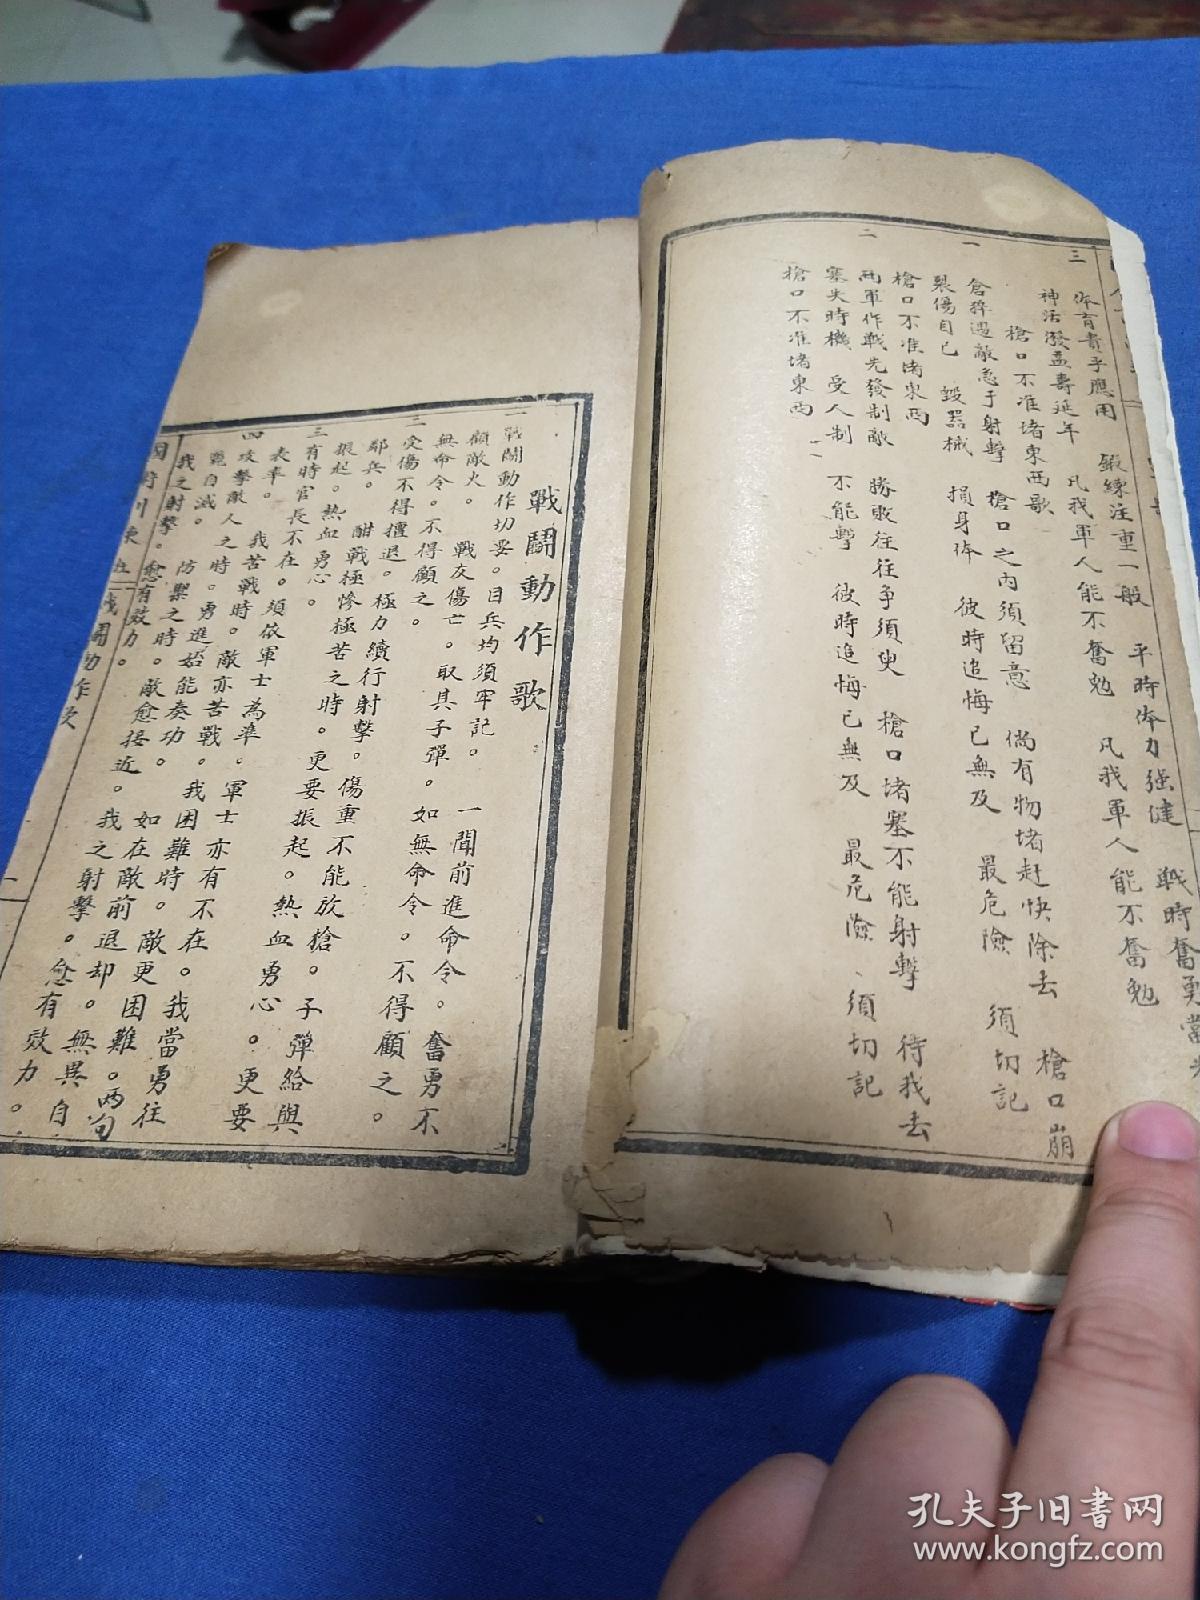 三 体育貴乎應用 鍛練注重一般 平時体力强健 戰時奮勇當先
神活潑益壽延年 凡我軍人能不奮勉 凡我軍人能不奮勉
槍口不准堵東西歌
一 倉猝遇敵急于射擊 槍口之內須留意 倘有物堵赶快除去 槍口崩
裂傷自己 毀器械 損身体 彼時追悔已無及 最危險 須切記
槍口不准堵東西
二 兩軍作戰先發制敵 勝敗往往争須臾 槍口堵塞不能射擊 待我去
塞失時機 受人制 不能擊 彼時追悔已無及 最危險 須切記
槍口不准堵東西
戰鬪動作歌
一 戰鬪動作切要。目兵均須牢記。 一聞前進命令。奮勇不
顧敵火。 戰友傷亡。取其子彈。如無命令。不得顧之。
無命令。不得顧之。
二 受傷不得擅退。極力續行射擊。傷重不能放槍。子彈給與
鄰兵。 酣戰極慘極苦之時。更要振起。熱血勇心。更要
振起。熱血勇心。
三 有時官長不在。須依軍士為準。軍士亦有不在。我當勇往
表率。 我苦戰時。敵亦苦戰。我困難時。敵更困難。兩句
四 攻擊敵人之時。勇進始能奏功。 如在敵前退却。無異自
斃自滅。 防禦之時。敵愈接近。我之射擊。愈有效力。
我之射擊。愈有效力。
戰鬪動作歌
一
孔夫子旧書网
www.kongfz.com